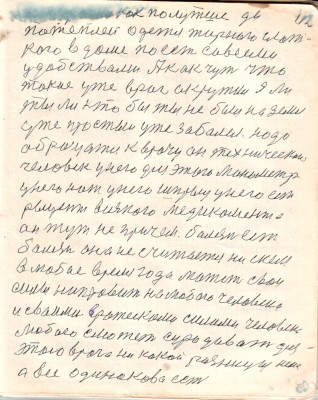 как получше да
потеплей одеты жирного слат-
кого в доме по ест савсеми
удобствами Я как чут что
такие уже враг окружил Я ли
ты ли кто бы ты не был на земли
уже простыл уже забалел. надо
обращати к врачу он технический
человек у него для этого манометр
у него нот у него шприц у него ест
рецепт всякого медикамента
он тут не причем. балезн ест
балезн она не считается ни с кем
в любое время года может свои
силы направит на любого человека
и своими вражескими силами человек
любого сможет
этого врага ни какой разницы нет
а все одинакова ест